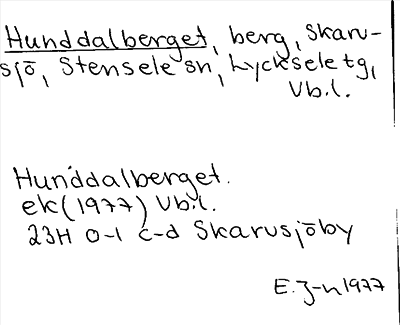 Hunddalberget, berg, Skaru-
sjö, Stensele sn, Lycksele tg,
Vb.l.
Hunddalberget.
ek(1977) Vb.l.
23H 0-1 c-d Skarusjöby
E. J-n 1977